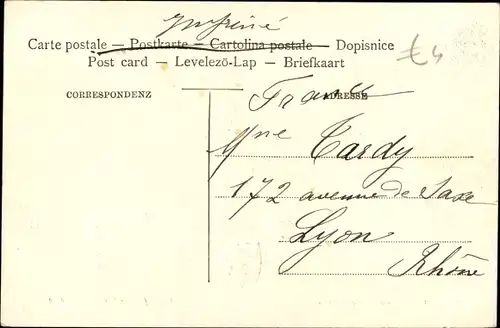 Imprimé
Carte postale — Postkarte — Cartolina postale — Dopisnice
£4
Post card — Levelező-Lap — Briefkaart
CORRESPONDENZ
ADRESSE
France
Mme Tardy
172 avenue de Saxe
Lyon
Rhône